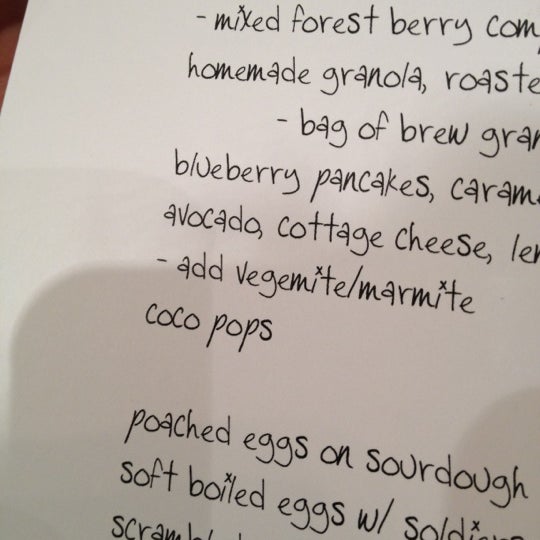 - mixed forest berry
homemade granola,
- bag of brew
blueberry pancakes,
avocado, cottage cheese,
- add vegemite/marmite
coco pops
poached eggs on sourdough
soft boiled eggs w/